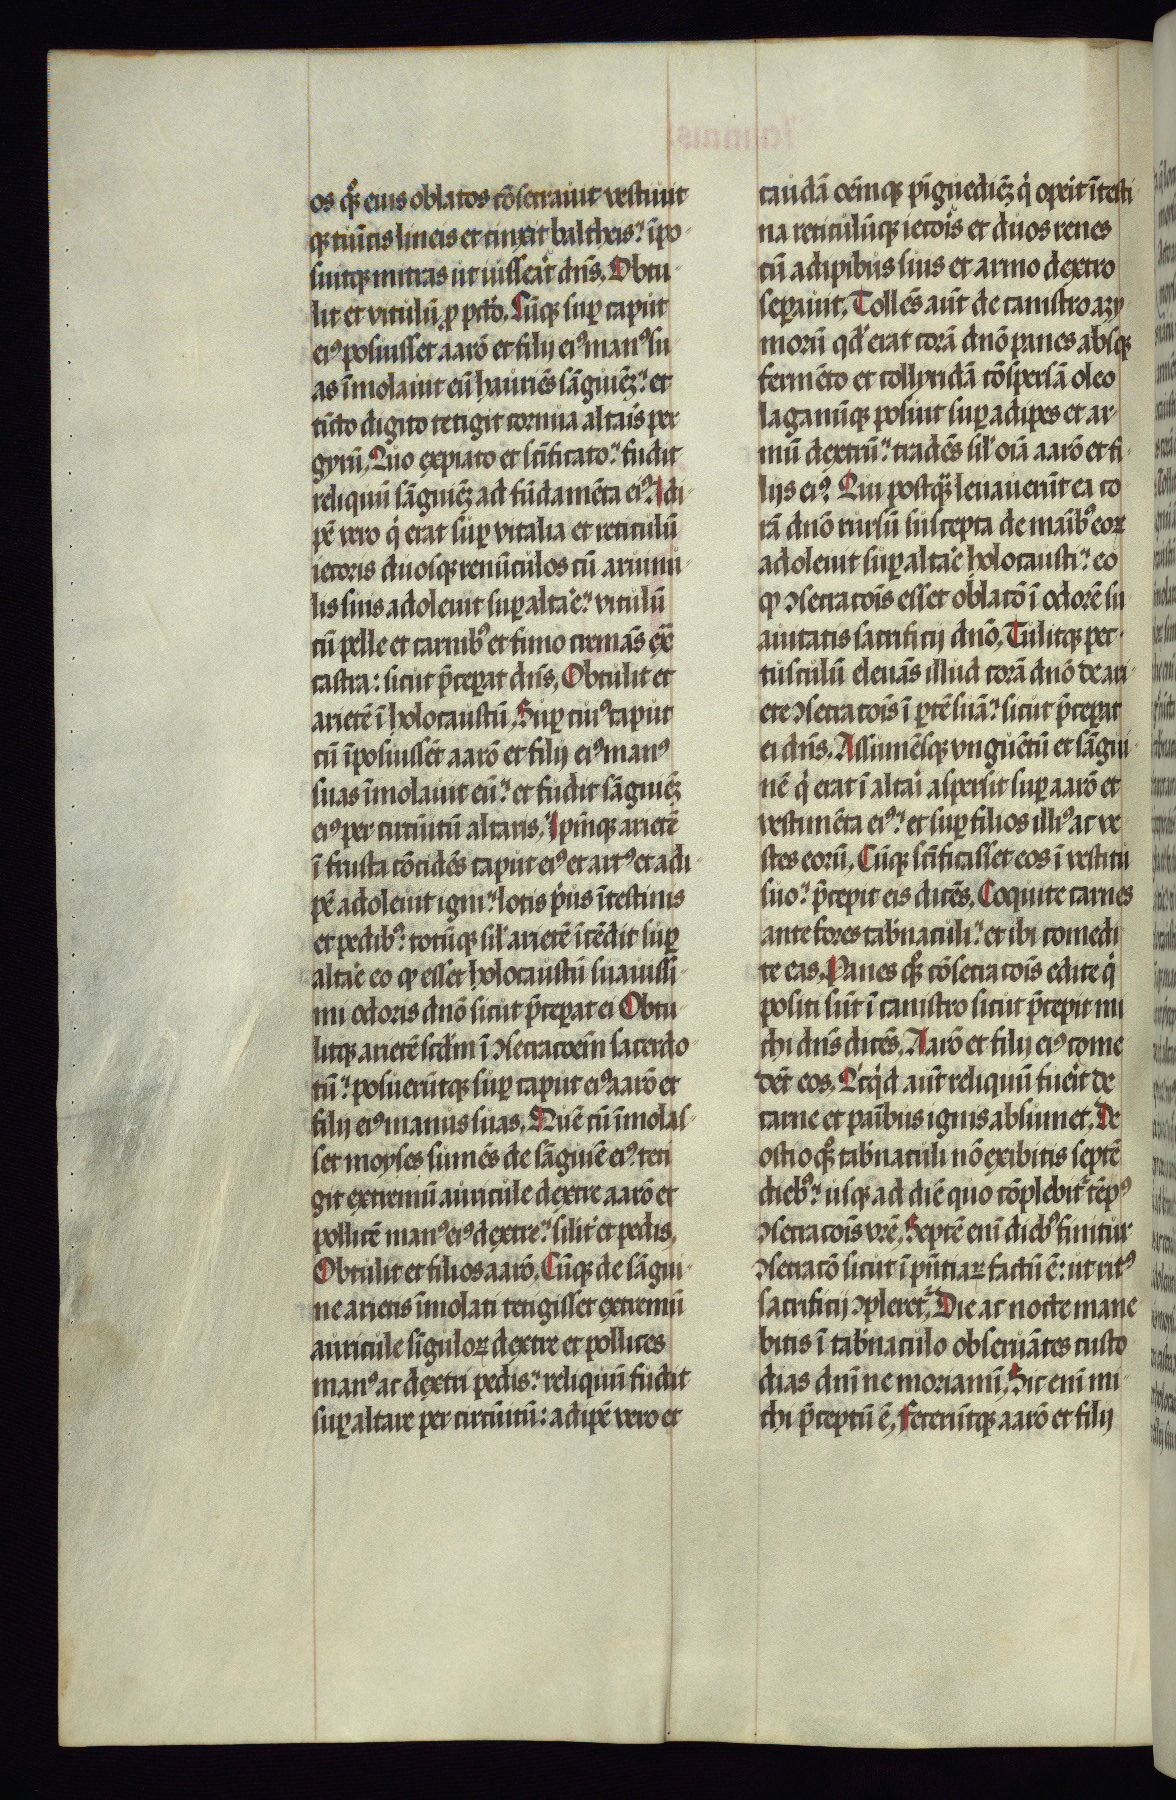 os qͦꝫ eius oblatos cōsecrauit vestiuit
qꝫ tuīcis lineis et cinxit baltheis. īpo
suitqꝫ mitras ut iusseāt dn̄s. Obtu
lit et vitulū ꝓ pctō. Cūqꝫ suꝑ caput
eiꝰ posuisset aarō et filij eiꝰ manꝰ su
as īmolauit eū hauriēs sāguīeꝫ. et
tīcto digito tetigit cornua altaīs per
gyrū. Quo expiato et sc̄ificato. fudit
reliquū sāguīeꝫ ad fūdamēta eiꝰ. Adi
pē vero qͥ erat suꝑ vitalia et reticulū
iecoris duosqꝫ renūculos cū aruinu
lis suis adoleuit suꝑ altaͤe. vitulū
cū pelle et carnibꝰ et fimo cremās ex̄
castra: sicut p̄ceꝑat dn̄s. Obtulit et
arietē ī holocaustū. Suꝑ cuiꝰ caput
cū īposuissēt aarō et filij eiꝰ manꝰ
suas īmolauit eū. et fudit sāguīeꝫ
eiꝰ per circūitū altaris. Ipm̄qꝫ arietē
ī frusta cōcidēs caput eiꝰ et artꝰ et adi
pē adoleuit igni. lotis pͥus ītestinis
et pedibꝰ. totūqꝫ sil̄ arietē ītēdit suꝑ
altaͤe eo ꝙ esset holocaustū suauissi
mi odoris dnō sicut p̄ceꝑat ei Obtu
litqꝫ arietē scd̄m ī ↄsecratoēm sacerdo
tū. posuerūtqꝫ suꝑ caput eiꝰ aarō et
filij eiꝰ manus suas. Quē cū īmolas
set moyses sumēs de sāguīe eiꝰ. teti
git extremū auricule dextre aarō et
pollicē manꝰ eiꝰ dextre. silit̄ et pedis.
Obtulit et filios aarō. Cūqꝫ de sāgui
ne arietis īmolati tetigisset extremū
auricule sīguloꝝ dextre et pollices
manꝰ ac dextri pedis. reliquū fudit
suꝑ altare per circūitū: adipē vero et
caudā oēmqꝫ pīguediēꝫ qͥ opeīt ītesti
na reticulūqꝫ iecoīs et duos renes
cū adipibus suis et armo dextro
seꝑauit. Tollēs aūt de canistro azy
morū qd̄ erat corā dnō panes absqꝫ
fermēto et collyridā cōsꝑsā oleo
laganūqꝫ posuit suꝑ adipes et ar
mū dextrū. tradēs sil̄ oīa aarō et fi
lijs eiꝰ. Qui postqͣꝫ leuauerūt ea co
rā dnō rursū suscepta de maībꝰ eoꝝ
adoleuit suꝑ altaͤe holocausti. eo
ꝙ ↄsecratoīs esset oblatō ī odorē su
auitatis sacrificij dnō. Tulitqꝫ pec
tusculū eleuās illud corā dnō de ari
ete ↄsecratoīs ī ꝑtē suā. sicut p̄ceꝑat
ei dn̄s. Assumēsqꝫ vnguētū et sāgui
nē qͥ erat ī altaī aspersit suꝑ aarō et
vestimēta eiꝰ. et suꝑ filios illiꝰ ac ve
stes eorū. Cūqꝫ sc̄ificasset eos ī vestitu
suo. p̄cepit eis dicēs. Coquite carnes
ante fores tab̄naculi. et ibi comedi
te eas. Panes qͦꝫ cōsecratoīs edite qͥ
positi sūt ī canistro sicut p̄cepit mi
chi dn̄s dicēs. Aarō et filij eiꝰ come
dēt eos. Qͥcqͥd aūt reliquū fueīt de
carne et paībus ignis absumet. De
ostio qͦꝫ tab̄naculi nō exibitis septē
diebꝰ. usqꝫ ad diē quo cōplebit̄ tēpꝰ
ↄsecratoīs vr̄e. Septē enī diebꝰ finitur
ↄsecratō sicut ī pn̄tiaꝝ factū ē: ut ritꝰ
sacrificij ↄpleret̄. Die ac nocte mane
bitis ī tab̄naculo obseruātes custo
dias dnī ne moriamī. Sic enī mi
chi p̄ceptū ē. Fecerūtqꝫ aarō et filij